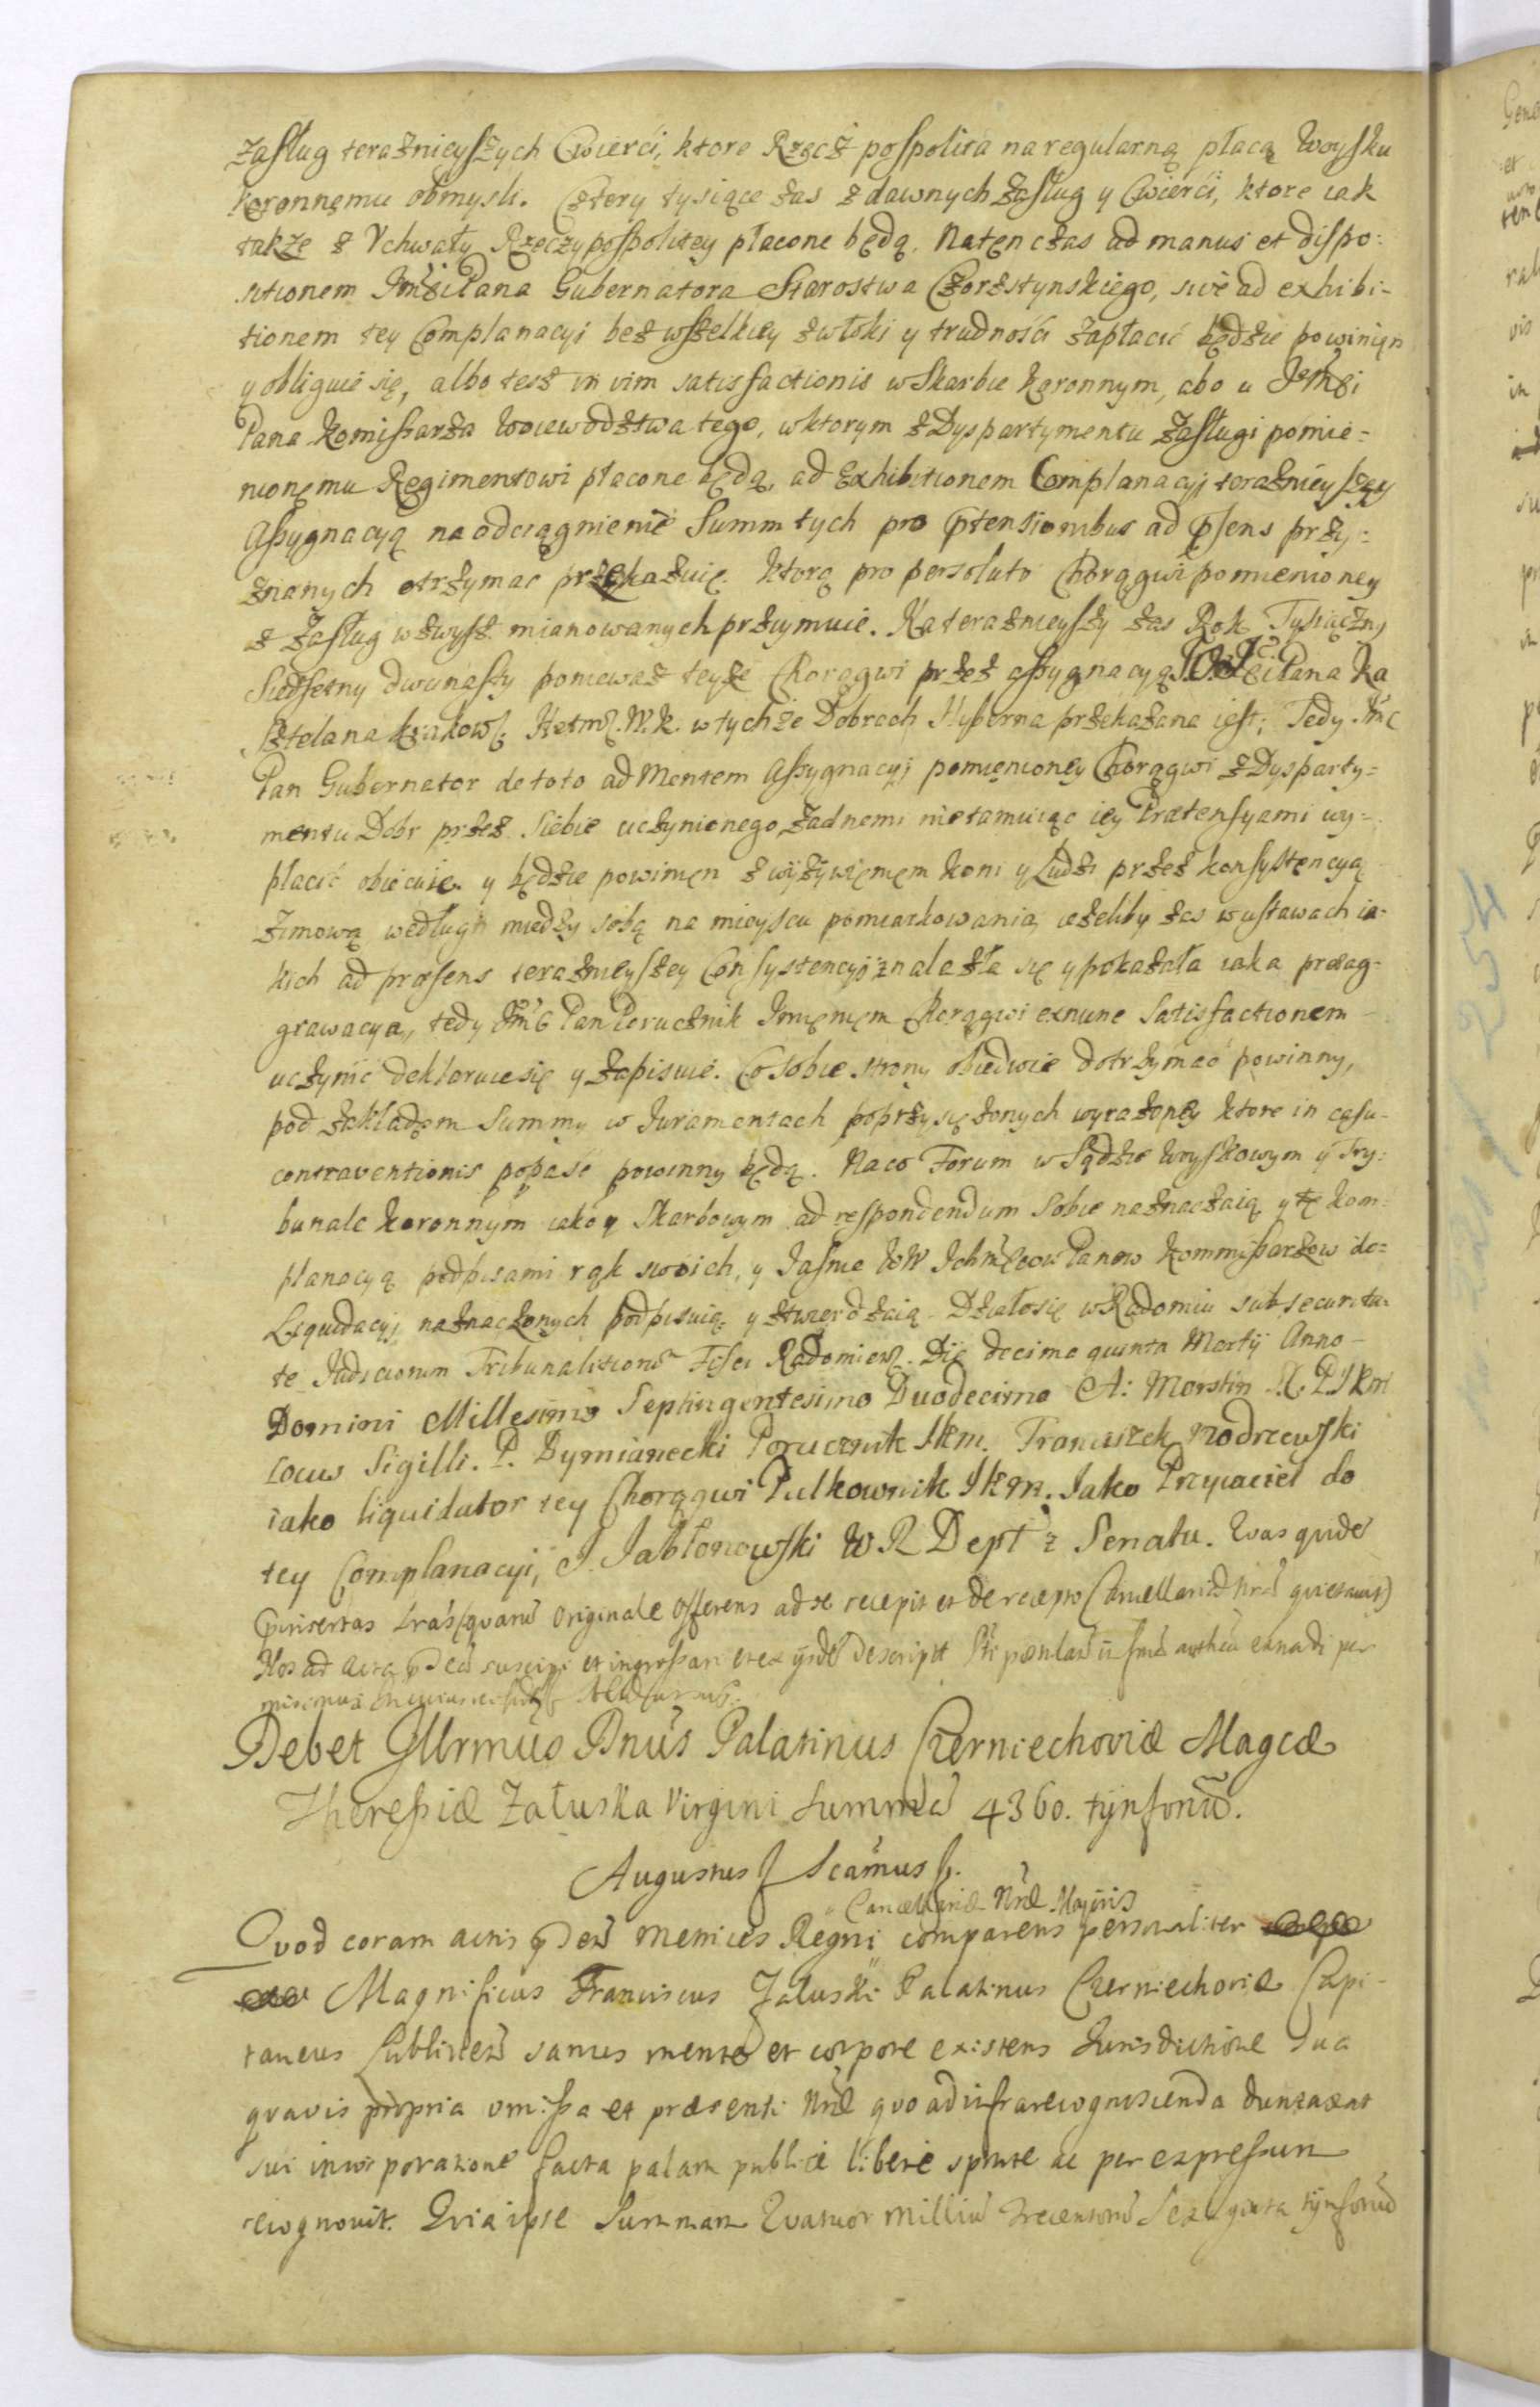 zasług teraznieyszych Cwierći, ktore Rzącz pospolita na regularną płacą Woysku
koronnęmu obmysli. Cztery tysiące zas z dawnych zasług y Cwierći, ktore iak
takze z Vchwały Rzeczypospolitey płacone będą. Natęnczas ad manus et dispo:
sitionem Jmści Pana Gubernatora Starostwa Czorsztynskiego, siue ad exhibi-
tionem tey Complanacyi bez wszelkiey zwłoki y trudnośći zapłacić będzie powinięn
y obliguie się, albo tesz in vim satisfactionis w Skarbie koronnym, abo u Jmści
Pana Komissarza Woiewodztwa tego, w ktorym z Dyspartymentu zasługi pomie=
nionęmu Regimentowi płacone będą, ad Exhibitionem Complanacyi teraznieyszęy
Assygnacyą na odciągnienie Summ tych pro ptensionibus ad psens przy=
znanych otrzymac przękazuię. Ktorą pro persoluto Chorągwi pomienioney
z Zasług w zwysz mianowanych przyimuie. Na teraznieyszy zas Rok Tysiączny
Siedsetny dwunasty poniewaz teyze Chorągwi przez assygnacyą Pana Ka
sztelana krakow. Hetm. W. k. w tychze Dobrach Hyberna przekazana iest; Tedy Jmć
Pan Gubernator de toto ad Mentem Assygnacyi pomięnionęy Chorągwi z Dysparty=
mentu Dobr przez Siebie uczynionego zadnemi nietamuiąc iey Prætensyami wy=
płacić obiecuie y będzie powinięn z wyzywięnięm koni y Ludzi przez konsystęncyą
zimową według miedzy sobą na mieyscu pomiarkowania, iezeliby zas w ustawach ia-
kich ad præsens teraznieyszey Consystencyi znalazła się y pokazała iaka præag-
grawacya, tedy Jmć Pan Porucznik Imięnięm Chorągwi exnunc Satisfactionem
uczynić deklaruie się y zapisuie. Co sobie strony obiedwie dotrzymać powinny,
pod zakładęm Summy w Juramentach poprzysięzonych wyrazonęy ktore in casu
contraventionis popaść powinny będą. Naco Forum w Sądzie Woyskowym y Try:
bunale koronnym iako y Skarbowym ad respondendum Sobie naznaczaią y tę kom-
planacyą podpisami rąk swoich, y Jasnie WW Ichmściow Panow Kommissarzow do=
Liquidacyi naznaczonych podpisuią y ztwierdzaią. Działosię w Radomiu sub securita-
te Judiciorum Tribunalitiorum Fisci Radomien. Die decima quinta Martij Anno
Domini Millesimo Septingentesimo Duodecimo A: Morstin
Locus Sigilli. P. Dymianecki Porucznik Jkm. Franciszek Modrzewski
iako liquidator tey Chorągwi Pulkownik Jkm. Jako Przyiaciel do
tey Complanacyi, J. Jabłonowski W R Dept z Senatu. Quas quidem
insertas Lras (quarū Originale Offerens ad se recepit et de recepto Cancellariā Nrā quietavit)
Nos ad Acta suscipi et ingrossari et ex ijsdē descript
misimus
Debet Illrmūs Dnūs Palatinus Czerniechoviæ Magcæ
Theressiæ Załuska Virgini Summā 4360. tynfonū.
Augustus Scāmus
Cancellariæ Nræ Majoris
Quod coram actis Metrices Regni comparens personaliter
Magnificus Franciscus Załuski Palatinus Czerniechoviæ Capi-
taneus sanus mente et corpore existens Jurisdictione sua
quavis propria omissa et præsenti Nræ quo ad infrarecognoscenda duntaxat
sui incorporatione facta palam publicè liberè sponte ac per expressum
recognovit. Quia ipse Summam Quatuor Milliū Trecentorū Sexaginta tynfonū